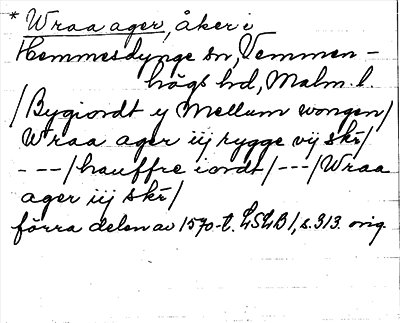 * Wraa ager, åker i
Hemmesdynge sn, Vemmen-
högs hd, Malm. l.
/Bygiordt y Mellum wongen/
Wraa ager iij rygge vij skr/
---/hauffre iordt/---/Wraa
ager iij skr/
förra delen av 1570-t. LSLB 1, s. 313. orig.